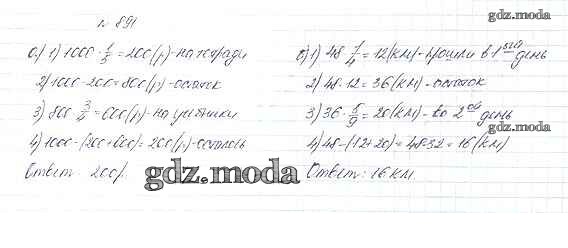 № 891
gdz.moda
а) 1) 1000 · 1/5 = 200 (р) - на тетради
2) 1000 - 200 = 800 (р) - остаток
3) 800 · 3/4 = 600 (р) - на учебники
4) 1000 - (200 + 600) = 200 (р) - осталось
Ответ: 200р.
б) 1) 48 · 1/4 = 12 (км) - прошли в 1 ый день
2) 48 - 12 = 36 (км) - остаток
3) 36 · 5/9 = 20 (км) - во 2 ой день
4) 48 - (12 + 20) = 48 - 32 = 16 (км)
Ответ: 16 км.
gdz.moda
gdz.moda